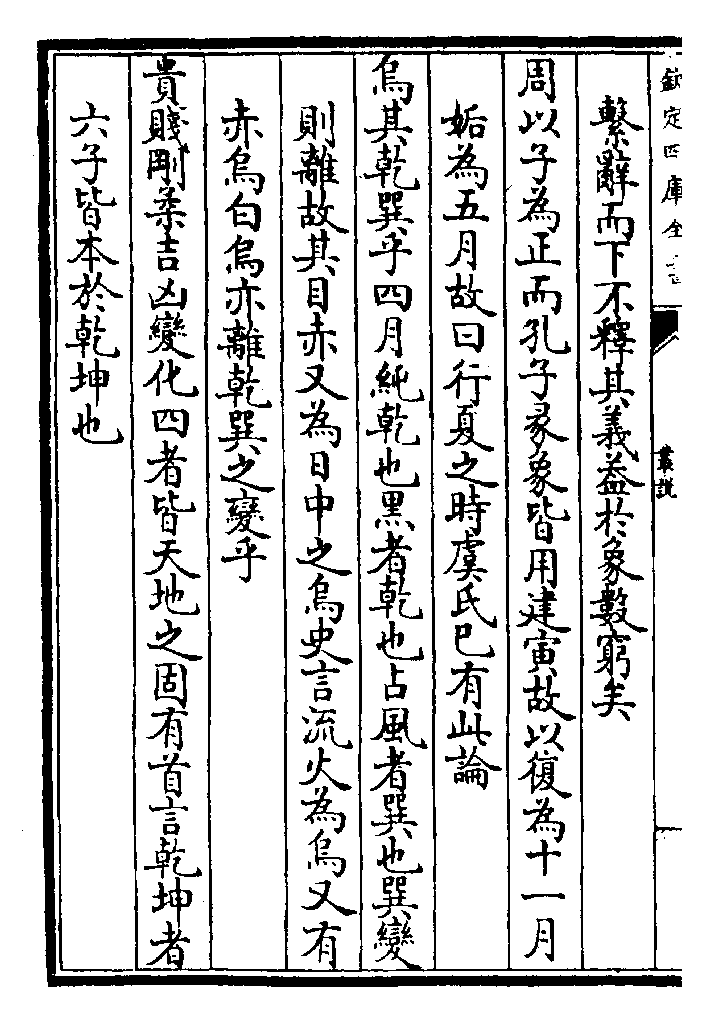 欽定四庫全書
叢說
繫辭而下不釋其義葢於象數窮矣
周以子為正而孔子彖象皆用建寅故以復為十一月
姤為五月故曰行夏之時虞氏已有此論
烏其乾巽乎四月純乾也黑者乾也占風者巽也巽變
則離故其目赤又為日中之烏史言流火為烏又有
赤烏白烏亦離乾巽之變乎
貴賤剛柔吉凶變化四者皆天地之固有首言乾坤者
六子皆本於乾坤也